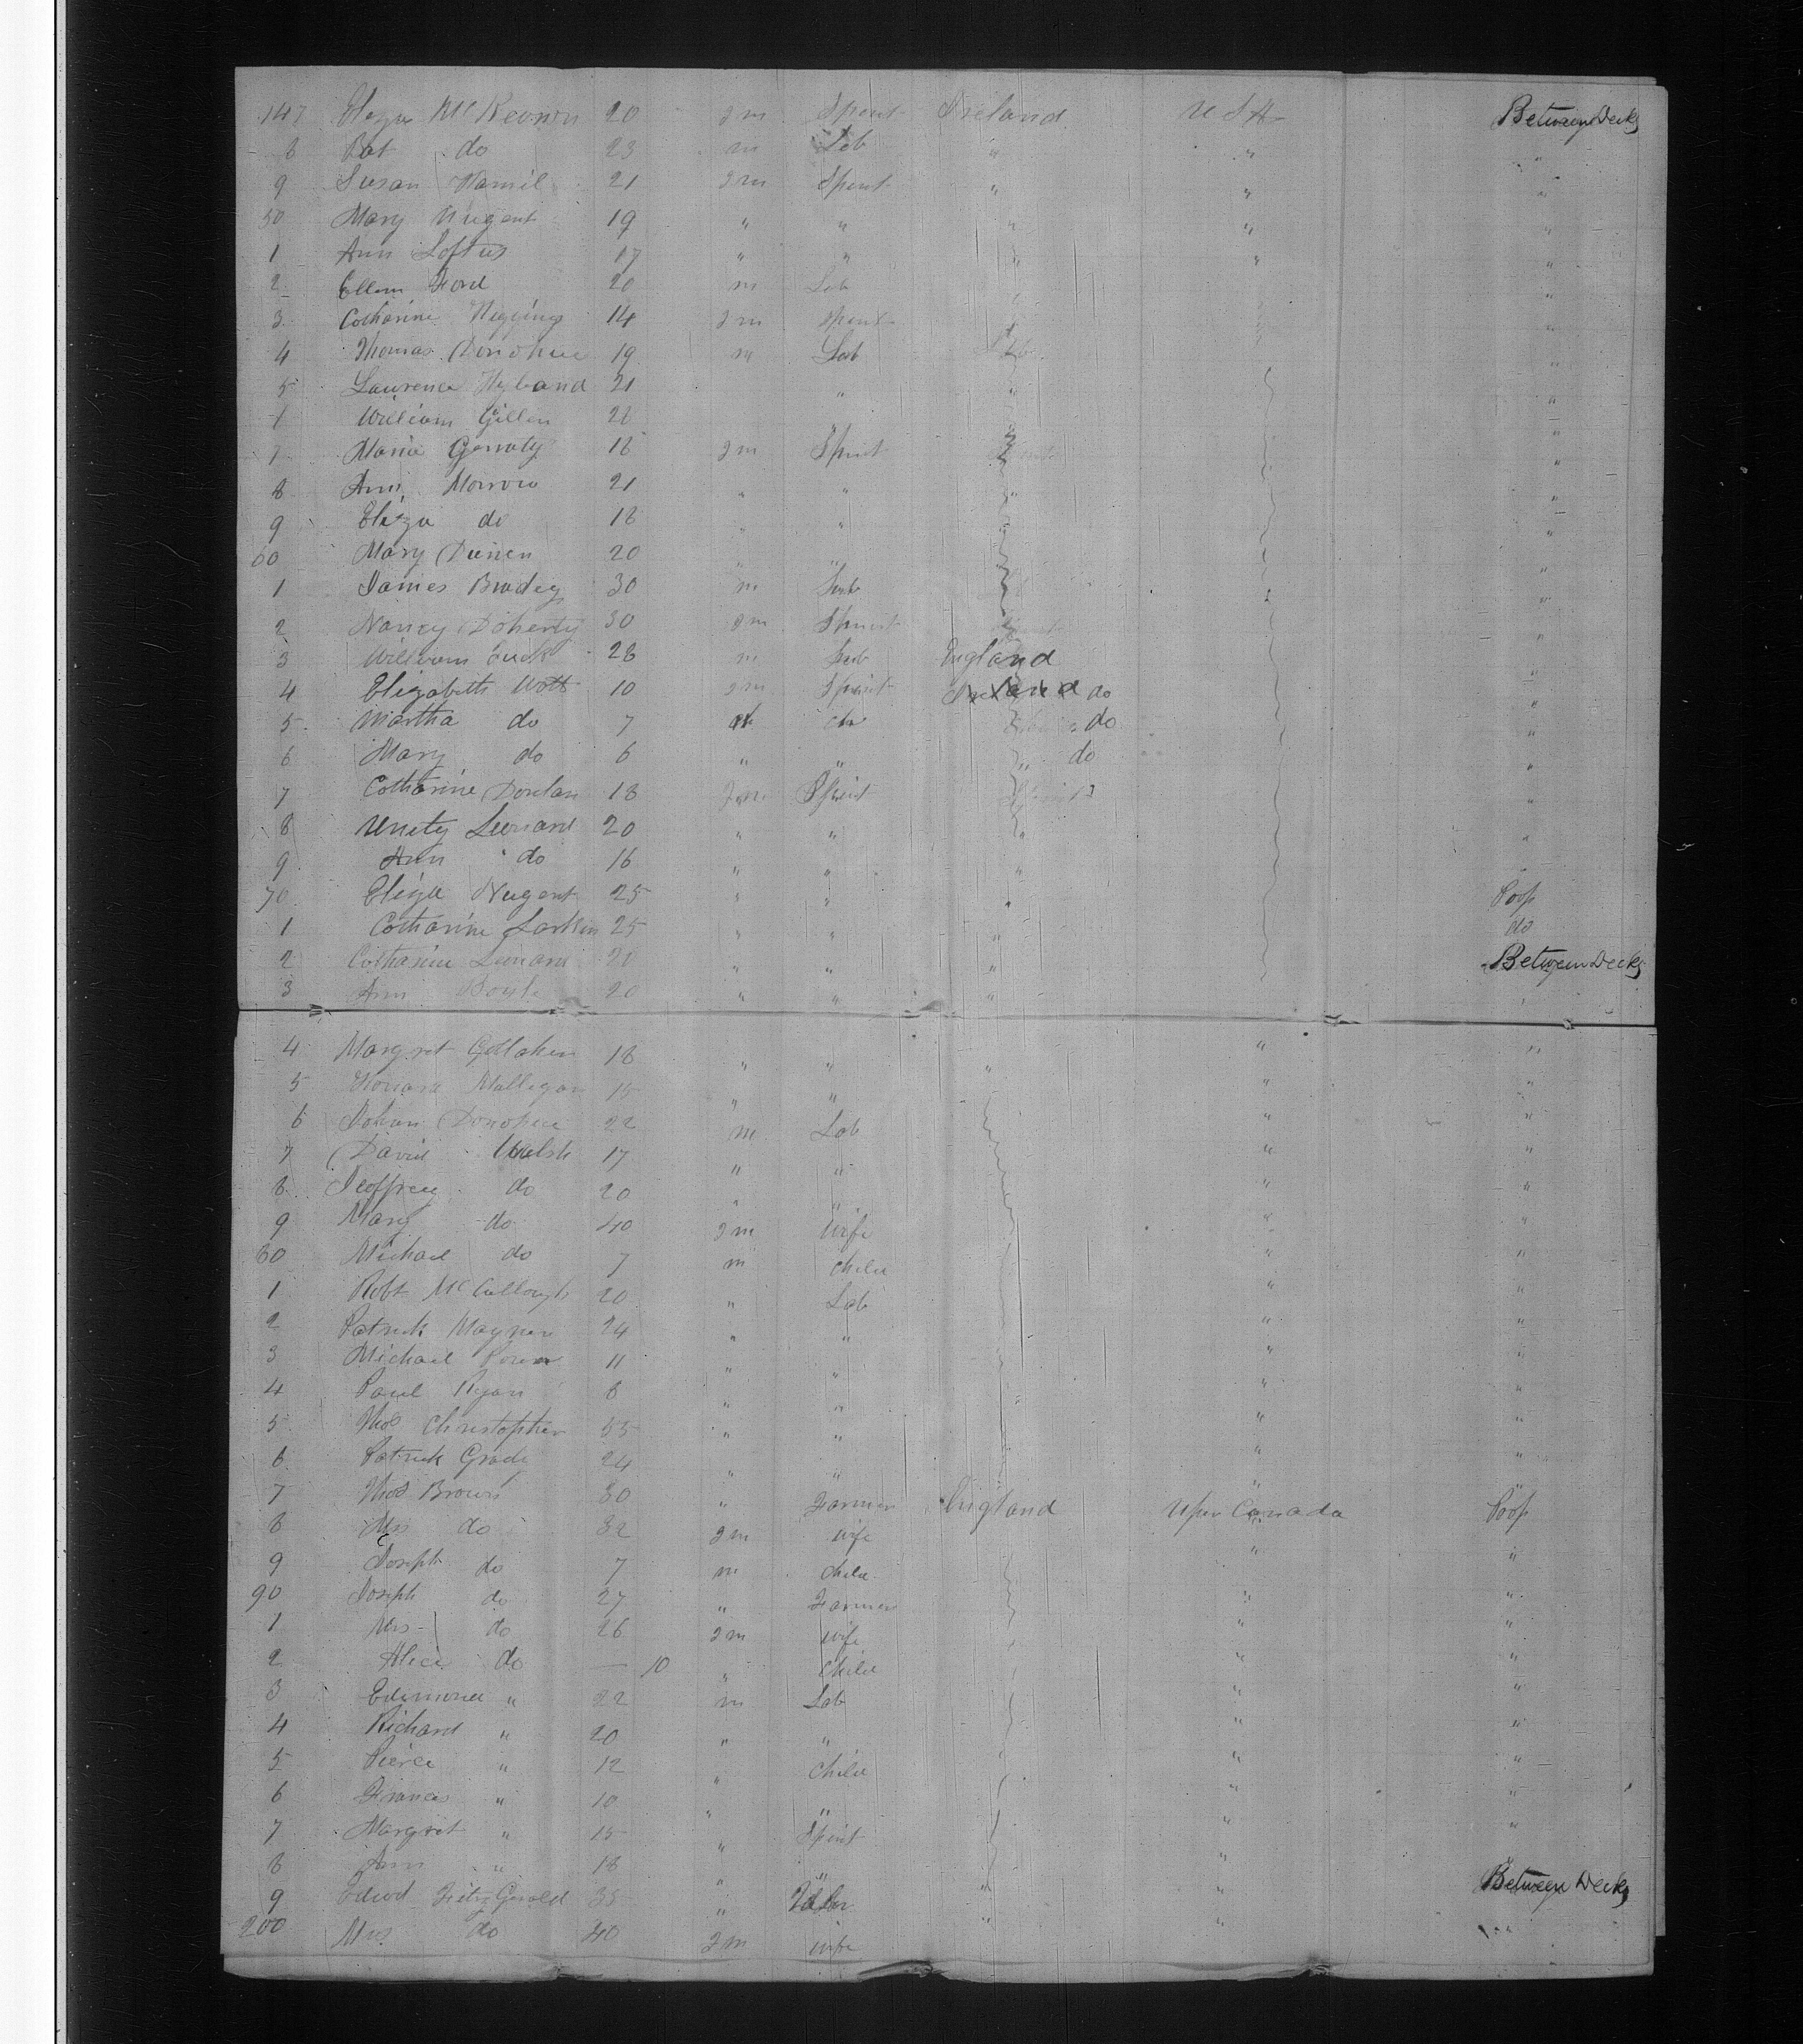 147 Eliza McKeown 20 fm Spinst Ireland U S A Between Decks
8 Pat do 23 m Lab " " "
9 Susan Hamil 21 fm Spinst " " "
50 Mary Nugent 19 " " " " "
1 Ann Loftus 17 " " " " "
2 Ellen Ford 20 m Lab "
3 Catharine Higgins 14 fm Spinst "
4 Thomas Donohue 19 m Lab "
5 Laurence Hyland 21 " " "
William Gillen 22 "
7 Maria Garraty 18 fm Spinst "
8 Ann Morrow 21 " " " "
9 Eliza do 18 " " " "
60 Mary 20 " " "
1 James Bradey 30 m Lab "
2 Nancy Doherty 30 fm Spinst "
3 William 28 m Lab England "
4 Elizabeth Watt 10 fm Spinst do "
5 Martha do 7 ch do "
6 Mary do 6 " " " do "
7 Catharine Donlan 18 fm Spinst "
8 Unity Leonard 20 " " " "
9 Ann do 16 " " "
70 Eliza Nugent 25 " " " Poop
1 Catharine Larkin 25 " " " do
2 Catharine Leonard 20 " " " Between Decks
3 Ann Doyle 20 " " " "
4 Margret 18 " " " " "
5 Honora Mulligan 15 " " " "
6 Johan Donohue 22 m Lab " "
7 David Walsh 17 " " " "
8 Jeoffrey do 20 " " " "
9 Mary do 40 fm Wife " "
80 Michael do 7 m Child " "
1 Robt McCullough 20 " Lab " "
2 Patrick Magner 24 " " " "
3 Michael Power 11 " " " "
4 Paul Ryan 8 " " " "
5 Thos Christopher 55 " " " "
6 Patrick Grady 24 " " " "
7 Thos Brown 30 " Farmer England Uper Canada Poop
8 Mrs do 32 fm wife " "
9 Joseph do 7 m Child "
90 Joseph do 27 " Farmer " "
1 Mrs do 26 fm wife " "
2 Alice do — 10 " Child " "
3 Edmond " 22 m Lab " "
4 Richard " 20 " " " "
5 Pierce " 12 " Child " "
6 Frances " 10 " " " "
7 Margret " 15 " Spinst " "
8 Ann " 18 " " "
9 Edwd FitzGerald 35 " " " Between Decks
200 Mrs do 40 fm wife " " "